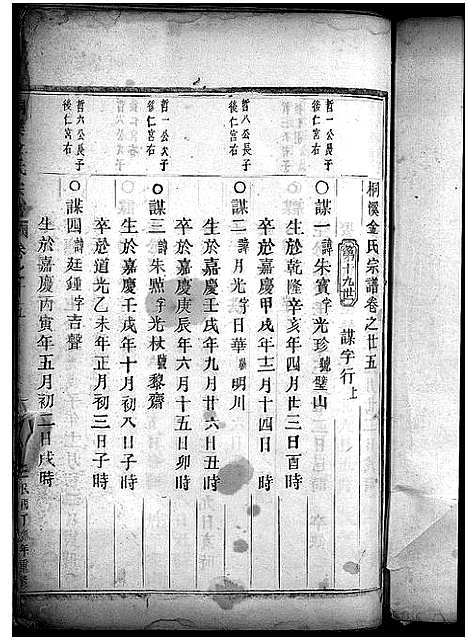 桐溪金氏宗譜卷之廿五
第十九世 謀字行上
哲一公長子
後仁宮右
〇謀一諱朱寶字光珍號璧山
生於乾隆辛亥年四月廿三日酉時
卒於嘉慶甲戌年十二月十四日 時
哲八公長子
後仁宮右
〇謀二諱月光字日華號明川
生於嘉慶壬戌年九月廿六日丑時
卒於嘉慶庚辰年六月十五日卯時
哲一公次子
後仁宮右
〇謀三諱朱點字光杖號黎齋
生於嘉慶壬戌年十月初八日子時
卒於道光乙未年正月初三日子時
哲六公長子
後仁宮右
〇謀四諱廷鍾字吉聲
生於嘉慶丙寅年五月初二日戌時